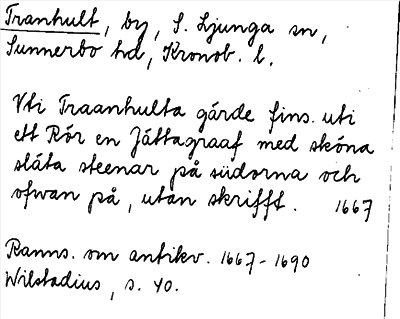 Tranhult, by, S. Ljunga sn,
Sunnerbo hd, Kronob. l.
Vti Traanhulta gårde fins uti
ett Rör en Jättagraaf med sköna
släta steenar på südorna och
ofwan på, utan skrifft. 1667
Ranns. om antikv. 1667-1690
Wilstadius, s. 40.